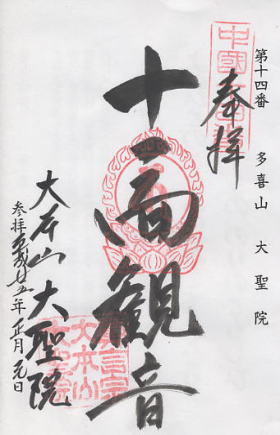 第十四番 多喜山 大聖院
中國
奉拝
十一面觀音
大本山 大聖院
真言宗
大本山
大聖院
参拝 平成廿五年 正月元日